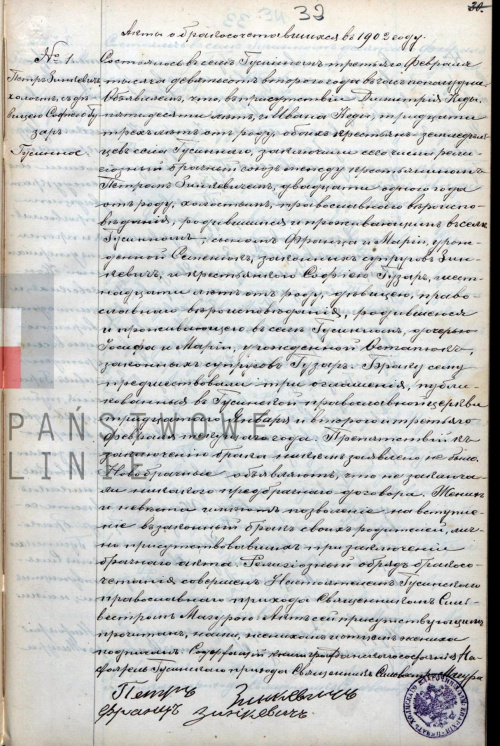 32
30.
Акты о бракосочетавшихся въ 1902 году.
№ 1.
Петръ Зинкевичъ
холостъ, съ дѣ-
вицею Софіею Гу-
заръ
Гусинное
Состоялось въ селѣ Гусинномъ третьяго Февраля
тысяча девятьсотъ второго года въ часъ пополудни
Объявляемъ, что, въ присутствіи Димитрія
пятидесяти лѣтъ, и Ивана тридцати
трехъ лѣтъ отъ роду, обоихъ крестьянъ-земледѣль-
цевъ села Гусиннаго, заключенъ сего числа рели-
гіозный брачный союзъ между крестьяниномъ
Петромъ Зинкевичемъ, двадцати одного года
отъ роду, холостымъ, православнаго вѣроиспо-
вѣданія, родившимся и проживающимъ въ селѣ
Гусинномъ, сыномъ Франца и Маріи, урож-
денной законныхъ супруговъ Зин-
кевичъ, и крестьянкою Софіею Гузаръ, шест-
надцати лѣтъ отъ роду, дѣвицею, право-
славнаго вѣроисповѣданія, родившеюся
и проживающею въ селѣ Гусинномъ, дочерью
Іосифа и Маріи, урожденной
законныхъ супруговъ Гузаръ. Браку сему
предшествовали три оглашенія, публи-
кованныя въ Гусинской православной церкви
Января и второго и третьяго
Февраля текущаго года. Препятствій къ
заключенію брака никѣмъ заявлено не было.
Новобрачные объявляютъ, что не заключа-
ли никакого предбрачнаго договора. Женихъ
и невѣста имѣютъ позволеніе на вступле-
ніе въ законный бракъ своихъ родителей, лич-
но присутствовавшихъ при заключеніи
брачнаго акта. Религіозный обрядъ бракосо-
четанія совершенъ Настоятелемъ Гусинскаго
православнаго прихода Священникомъ Силь-
вестромъ Мазурою. Актъ сей присутствующимъ
прочитанъ, нами, женихомъ и отцемъ жениха
подписанъ.
Гусинскаго прихода Священникъ
Петръ Зинкевичъ
Францъ Зинкевичъ.
PAŃSTWOWE
LINIE